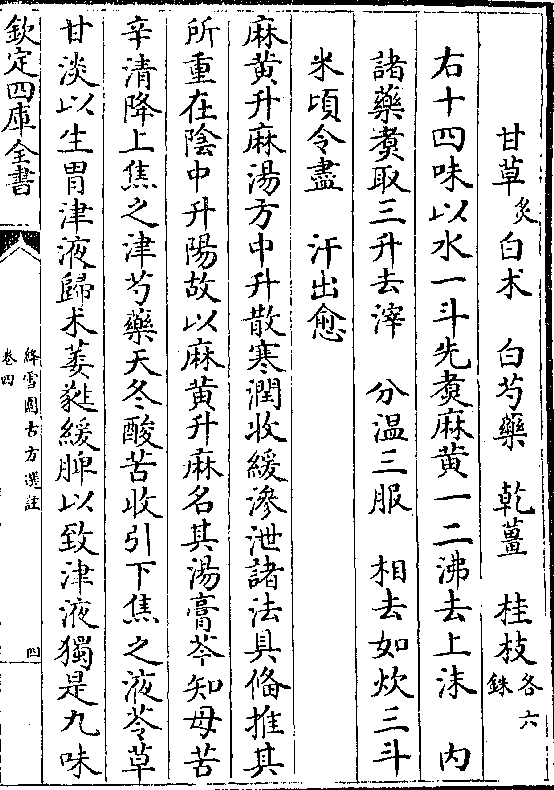 甘草炙 白术 白芍藥 乾薑 桂枝各六銖
右十四味以水一斗先煑麻黄一二沸去上沫 内
諸藥煑取三升去滓 分温三服 相去如炊三斗
米頃令盡 汗出愈
麻黄升麻湯方中升散寒潤收緩滲泄諸法具備推其
所重在陰中升陽故以麻黄升麻名其湯膏芩知母苦
辛清降上焦之津芍藥天冬酸苦收引下焦之液苓草
甘淡以生胃津液歸术萎蕤緩脾以致津液獨是九味
欽定四庫全書
絳雪園古方選註
卷四
四